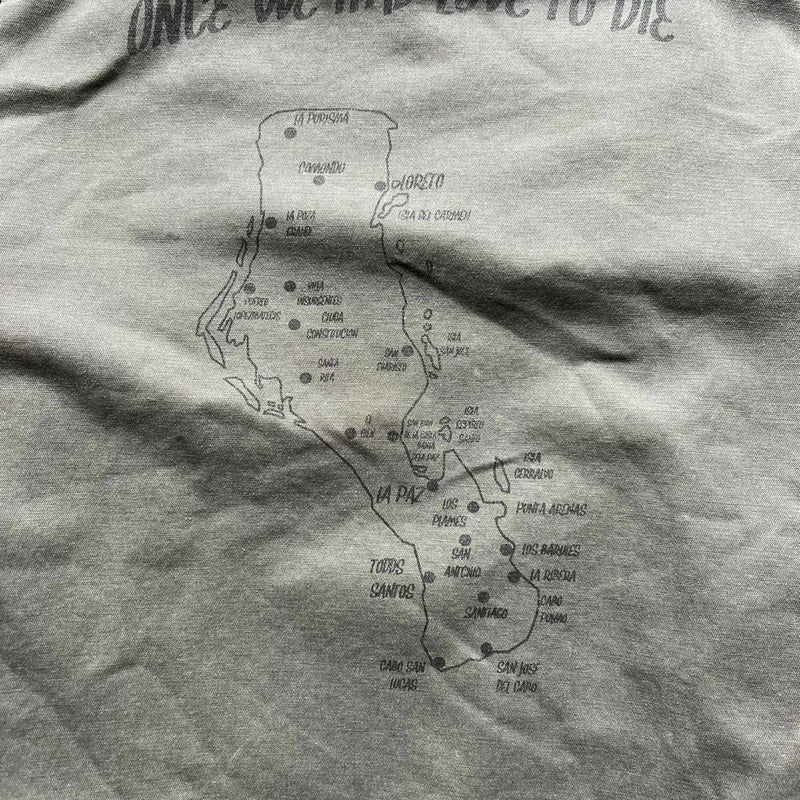 ONCE WE HAD LOVE TO DIE
LA PURISMA
COMONDU
LORETO
ISLA DEL CARMEN
LA POZA
GRANDE
VILLA
INSURGENTES
PUERTO
CIUDA
CONSTITUCION
SAN
ISLA
SAN JOSE
SANTA
RITA
ISLA
SANTO
SAN JUAN
DE LA COSTA
BAHIA
DE LA PAZ
ISLA
CERRALVO
LA PAZ
LOS
PLAMES
PUNTA ARENAS
SAN
ANTONIO
LOS BARILES
LA RIBERA
TODOS
SANTOS
SANTIAGO
CABO
PULMO
CABO SAN
LUCAS
SAN JOSE
DEL CABO